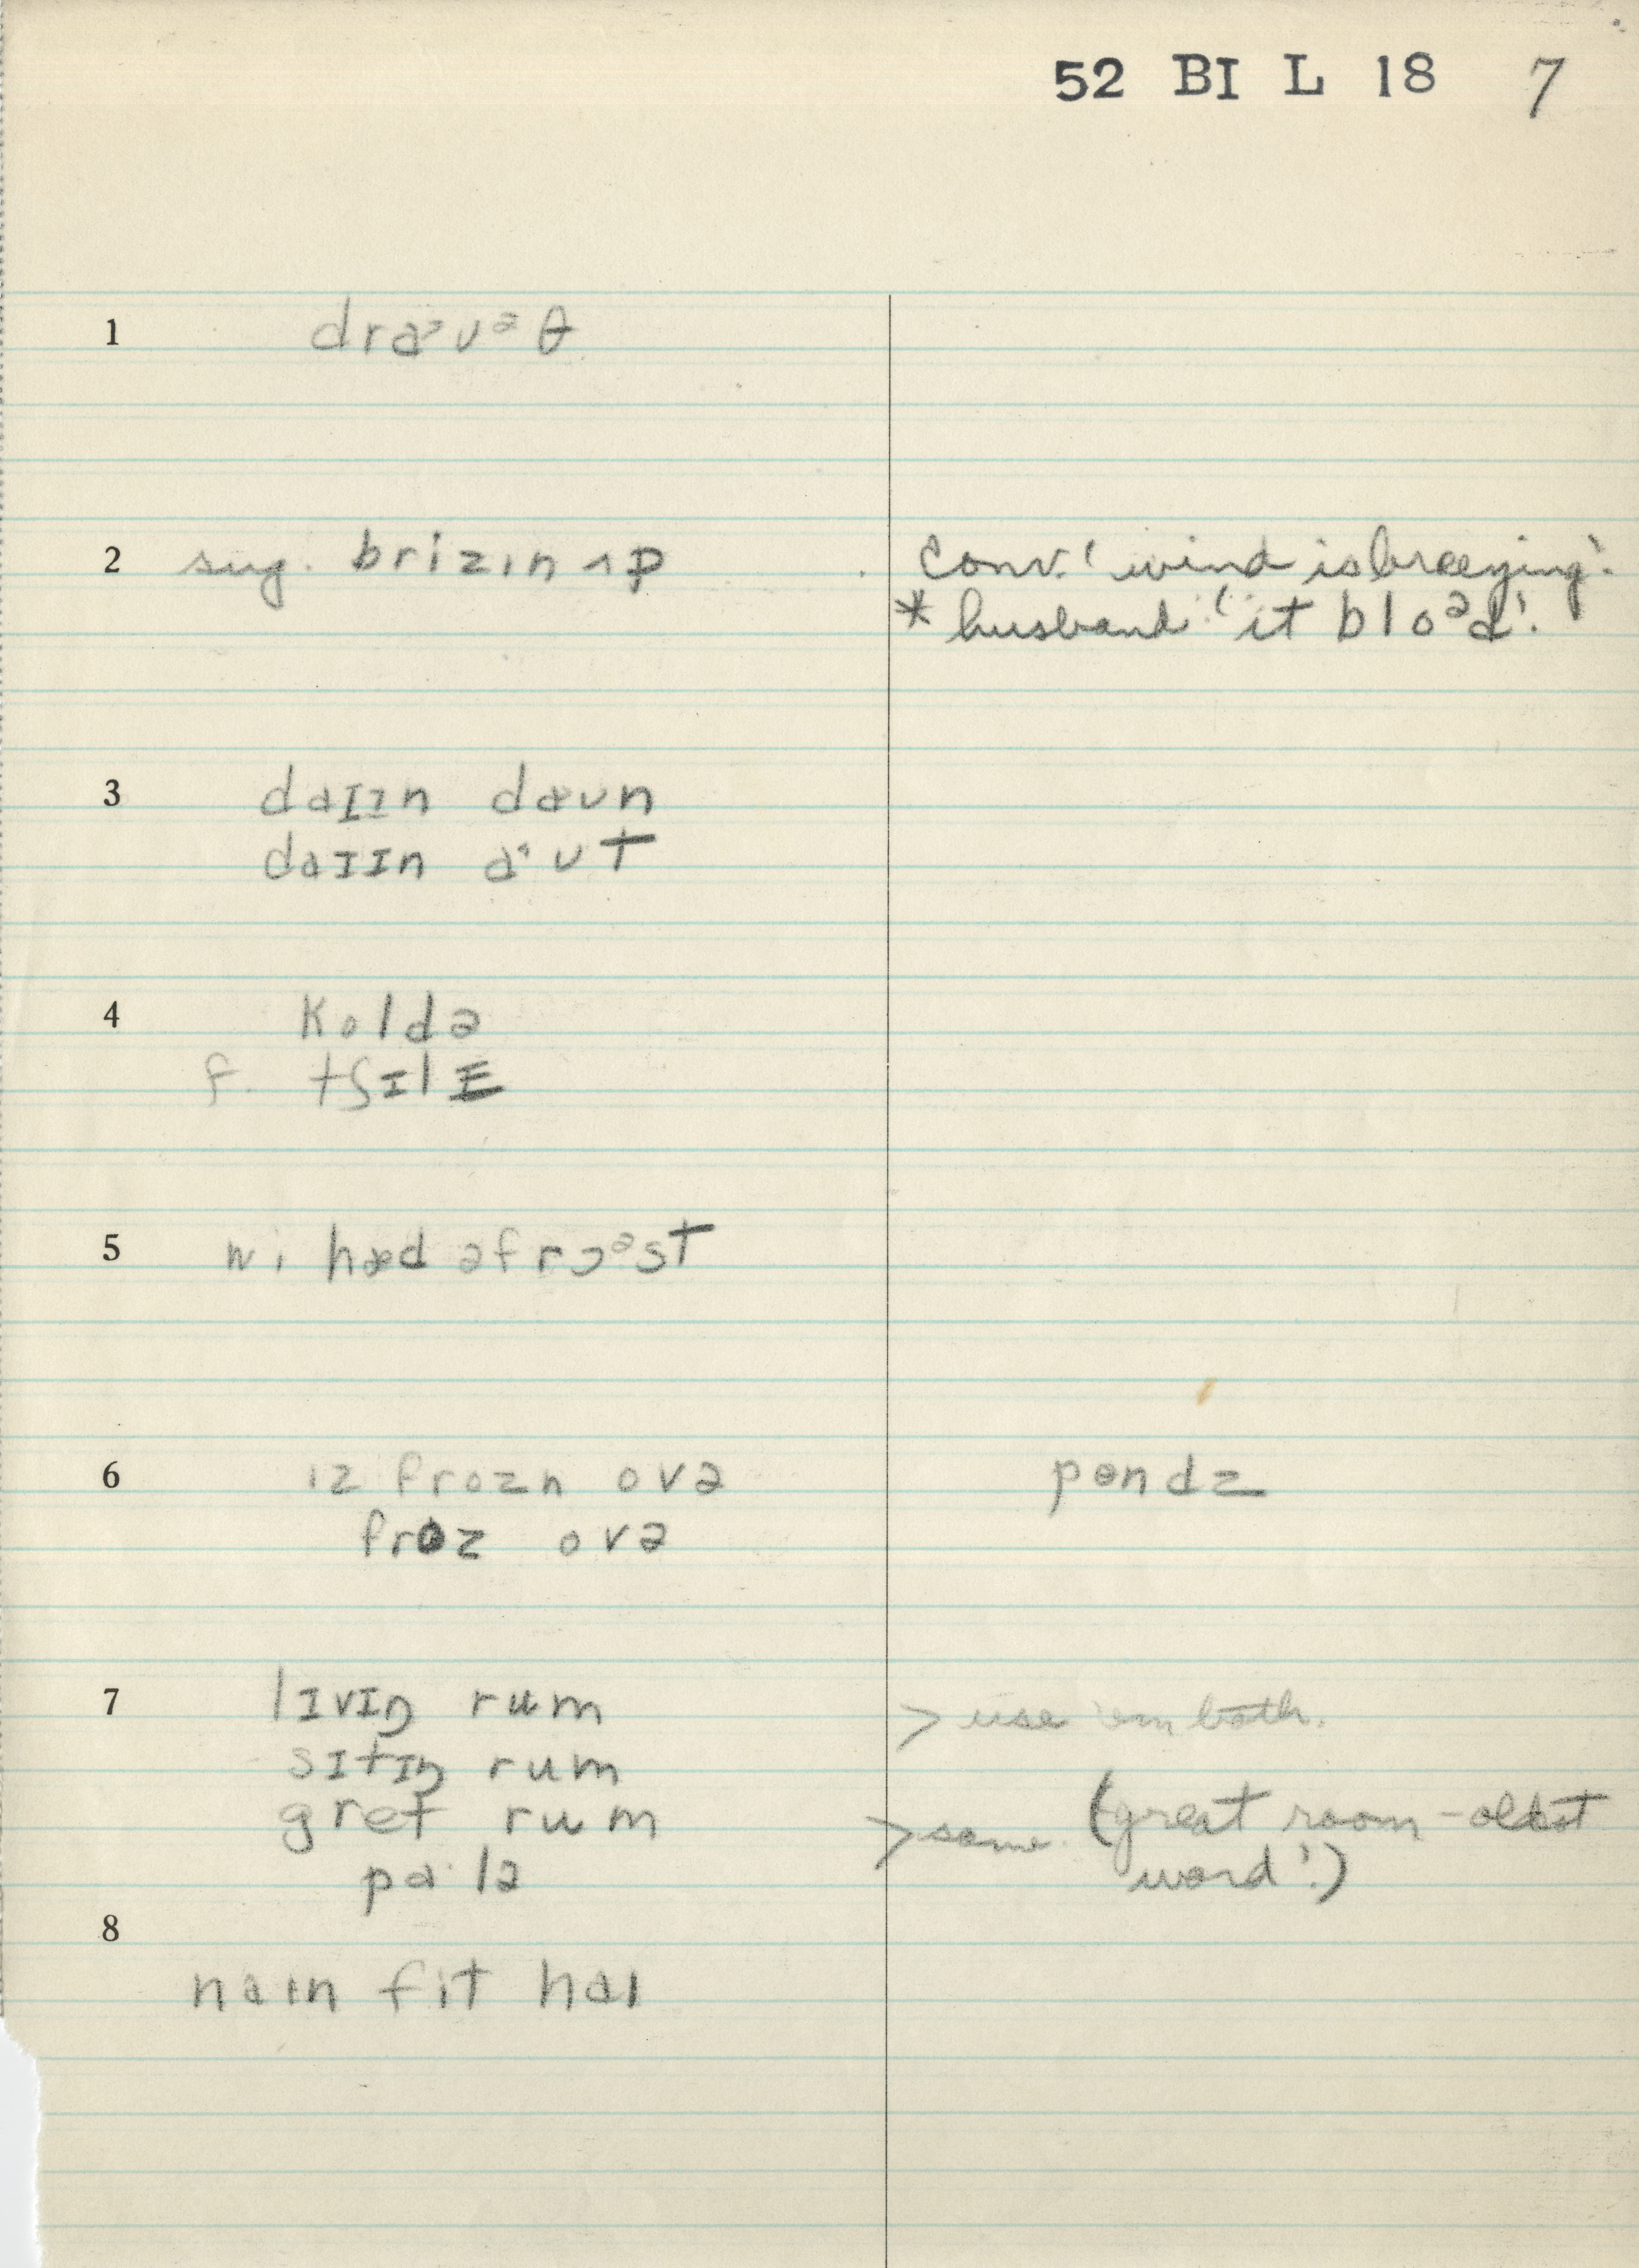 52 BI L 18 7
1 draᵊʊᵊθ
2 sug. brizɪn ʌp
conv. 'wind is breezing'.
* husband 'it bloᵊd'.
3 daɪɪn daʊn
daɪɪn aˑʊt
4 koldə
f. tʃɪlɪ
5 wi hæd əfrɔᵊst
6 ɪz frozn ovə pɒndz
froz ovə
7 lɪvɪŋ rum > use 'em both.
sɪtɪŋ rum
gret rum > same. (great room - oldest
pɑˑlə word'.)
8
naɪn fit haɪ